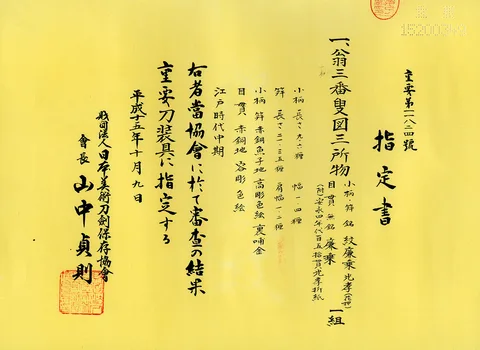 重要第一八二四號
指定書
一、翁三番叟図三所物 一組
小柄 笄 銘 紋廉乗光孝(花押)
目貫 無銘 廉乗
(附)安永四年代百五拾貫光孝折紙
小柄 長さ九・六糎 幅一・四糎
小柄 笄 赤銅魚子地 高彫色絵 裏哺金
目貫 赤銅地 容彫色絵
江戸時代中期
右者當協會に於て審査の結果
重要刀装具に指定する
平成十五年十月九日
財団法人日本美術刀剣保存協會
會長 山中貞則